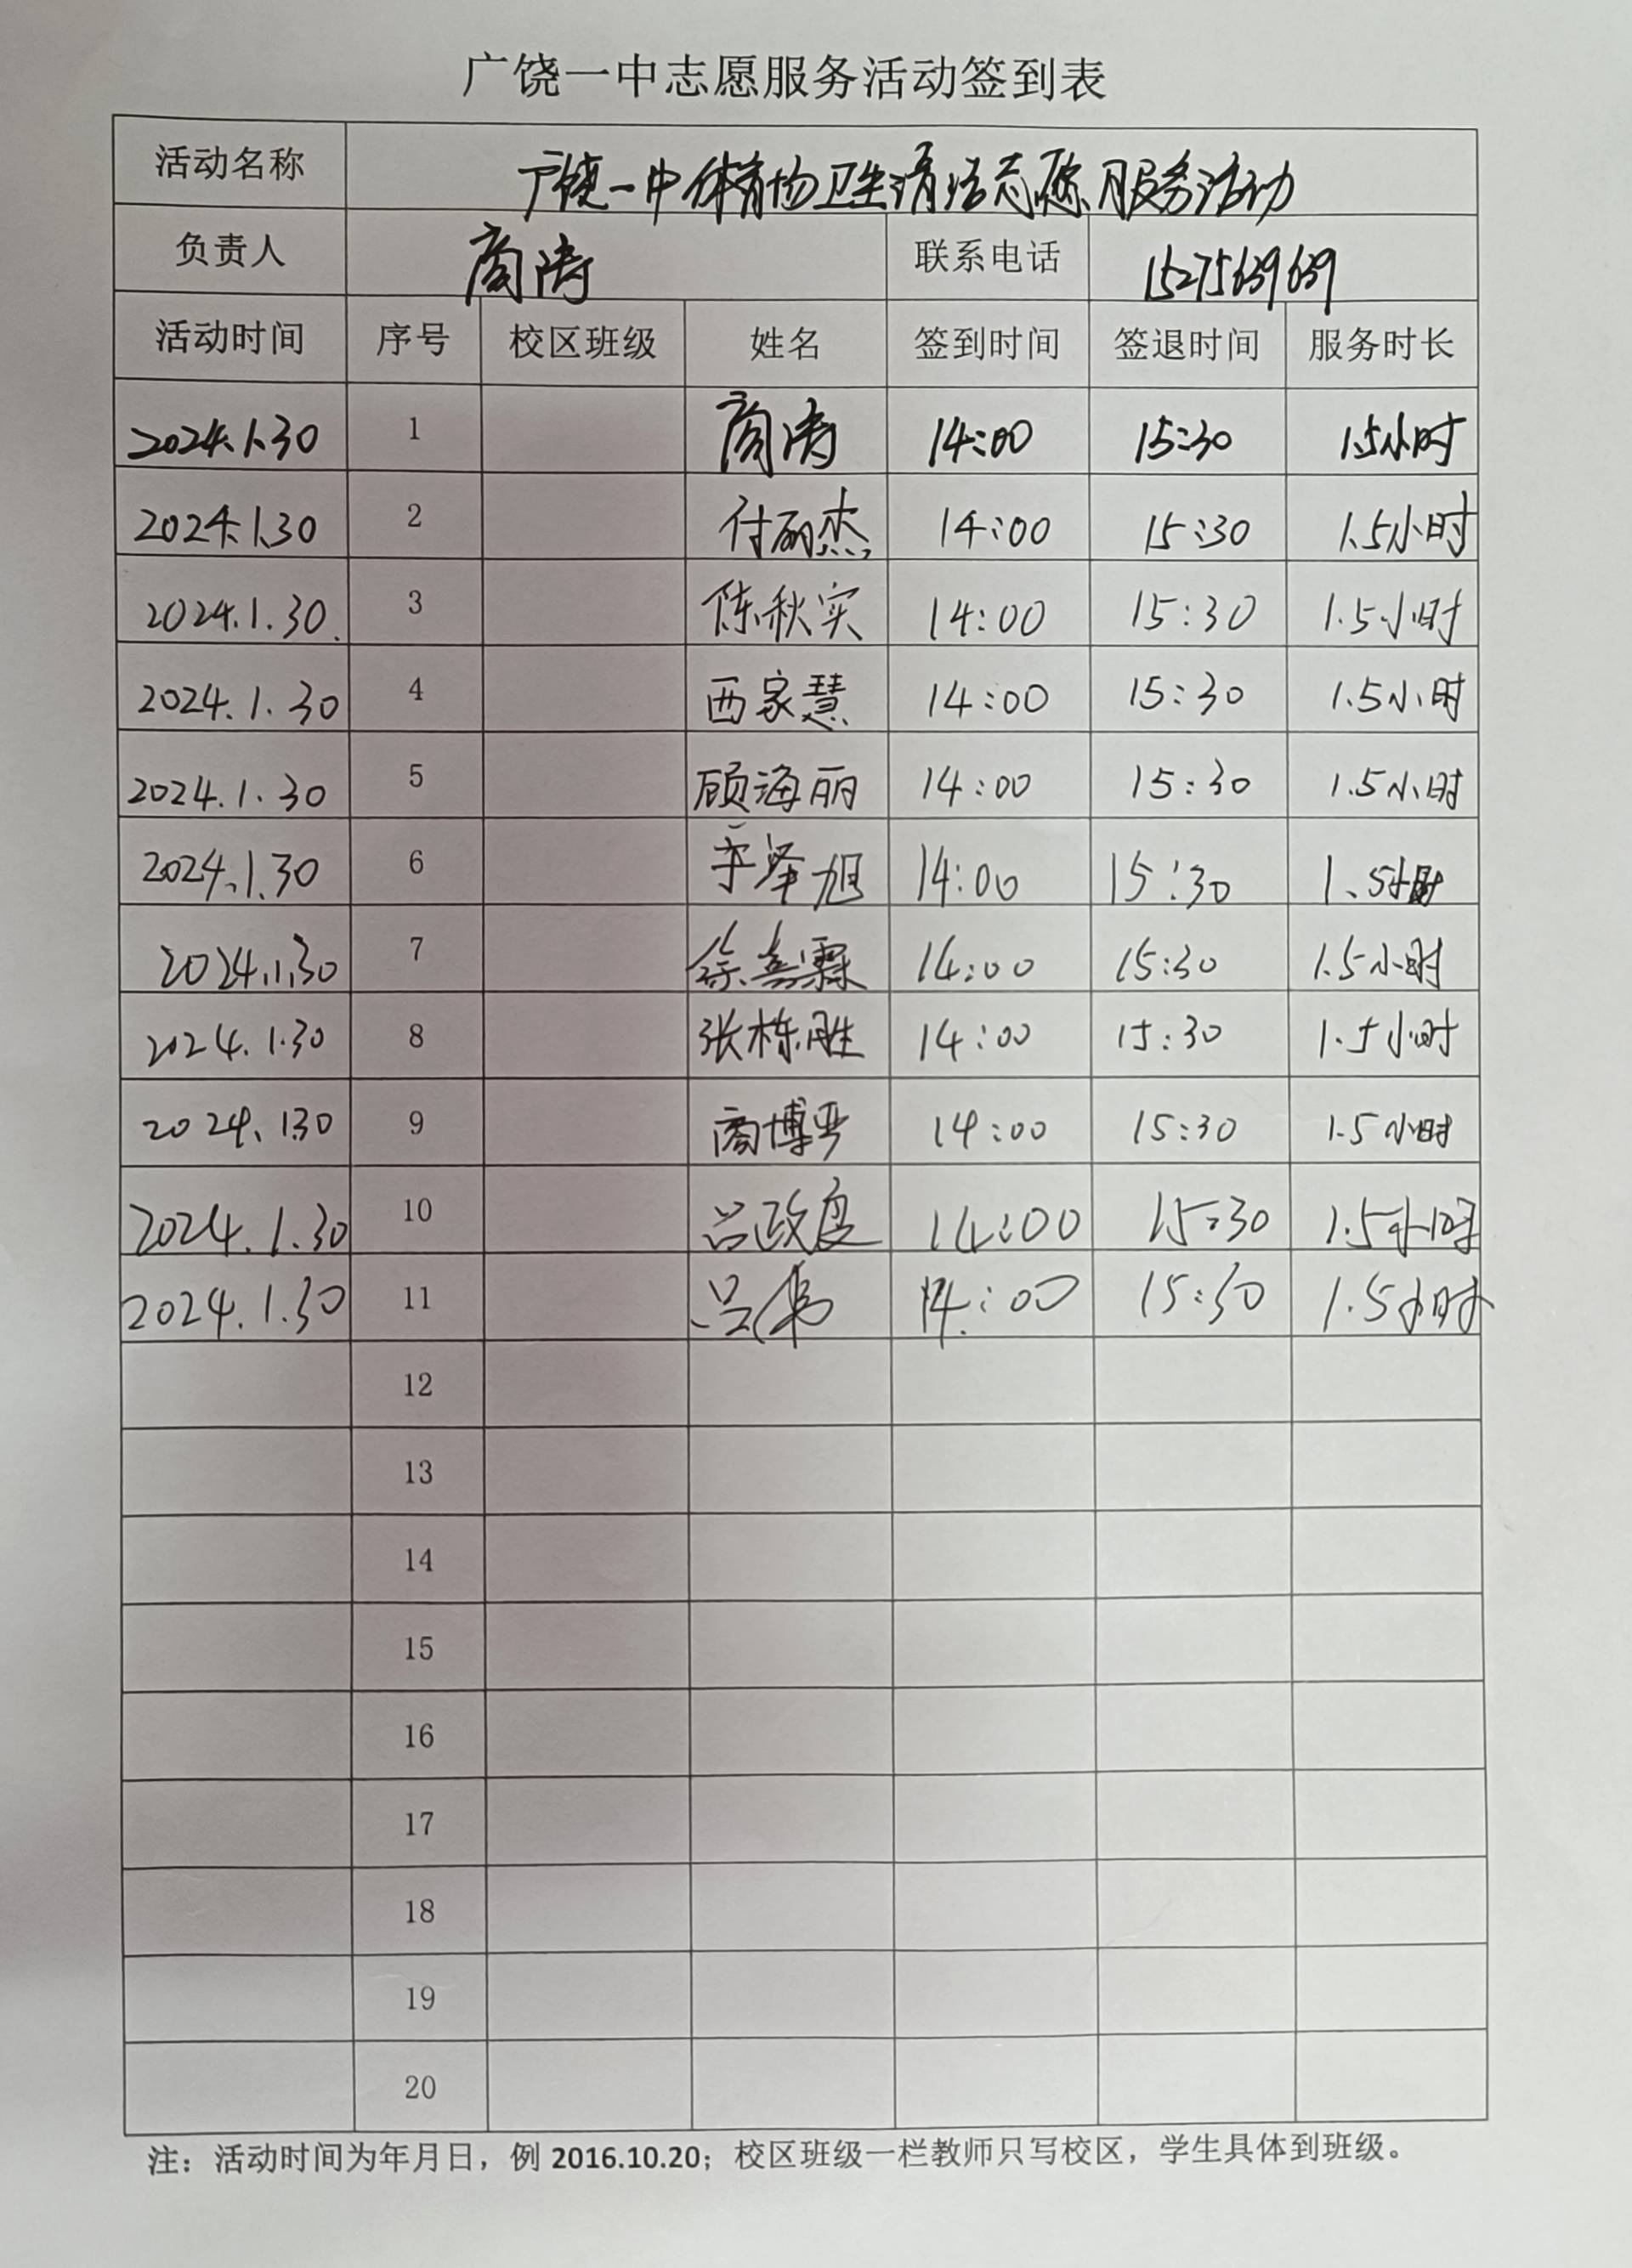 广饶一中志愿服务活动签到表
活动名称 广饶一中体育场卫生清洁志愿服务活动
负责人 商涛 联系电话 15275639639
活动时间 序号 校区班级 姓名 签到时间 签退时间 服务时长
2024.1.30 1 商涛 14:00 15:30 1.5小时
2024.1.30 2 付丽杰 14:00 15:30 1.5小时
2024.1.30. 3 陈秋实 14:00 15:30 1.5小时
2024.1.30 4 西家慧 14:00 15:30 1.5小时
2024.1.30 5 顾海丽 14:00 15:30 1.5小时
2024.1.30 6 14:00 15:30 1.5小时
2024.1.30 7 徐嘉霖 14:00 15:30 1.5小时
2024.1.30 8 张栋胜 14:00 15:30 1.5小时
2024.1.30 9 商博严 14:00 15:30 1.5小时
2024.1.30 10 14:00 15:30 1.5小时
2024.1.30 11 吕伟 14:00 15:30 1.5小时
12
13
14
15
16
17
18
19
20
注：活动时间为年月日，例 2016.10.20；校区班级一栏教师只写校区，学生具体到班级。